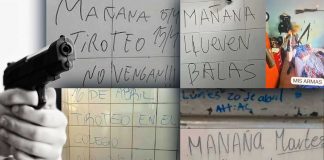 MAÑANA
TIROTEO
NO VENGAN!!!
MAÑANA
LLUEVEN
BALAS
MIS ARMAS
DE ABRIL
TIROTEO EN EL
COLEGIO
Lunes 20 de abril
MAÑANA Martes